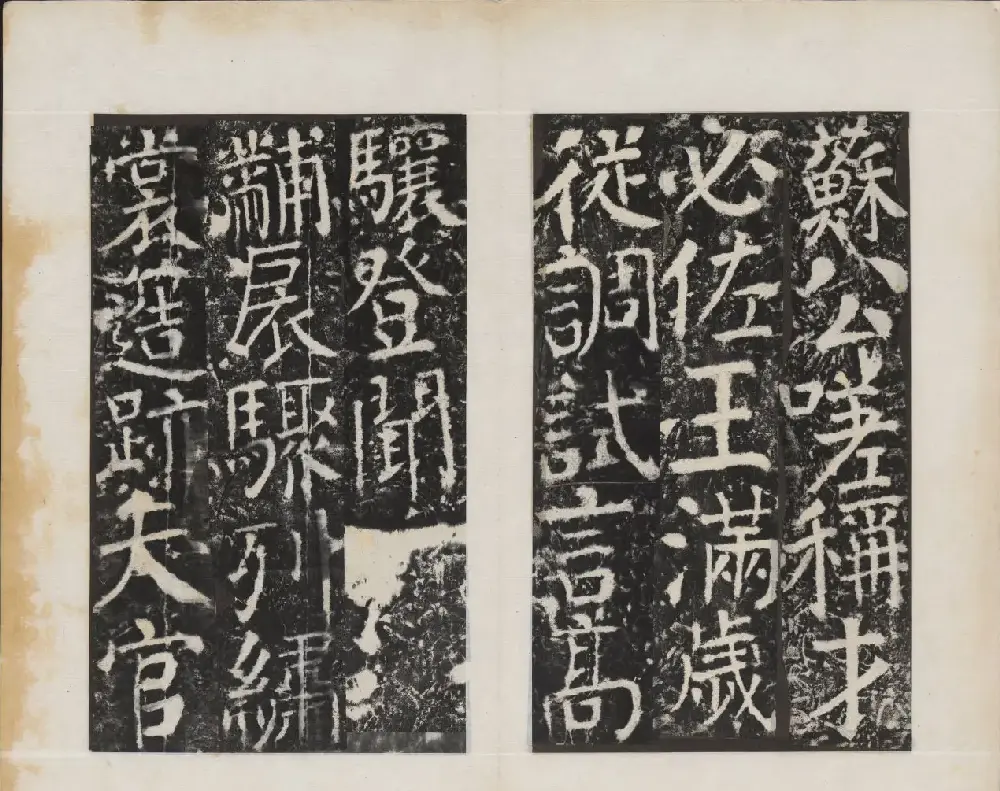 蘇公嗟稱才
必佐王滿歲
從調試言高
驤登聞
黼扆驟列繡
裳造天官